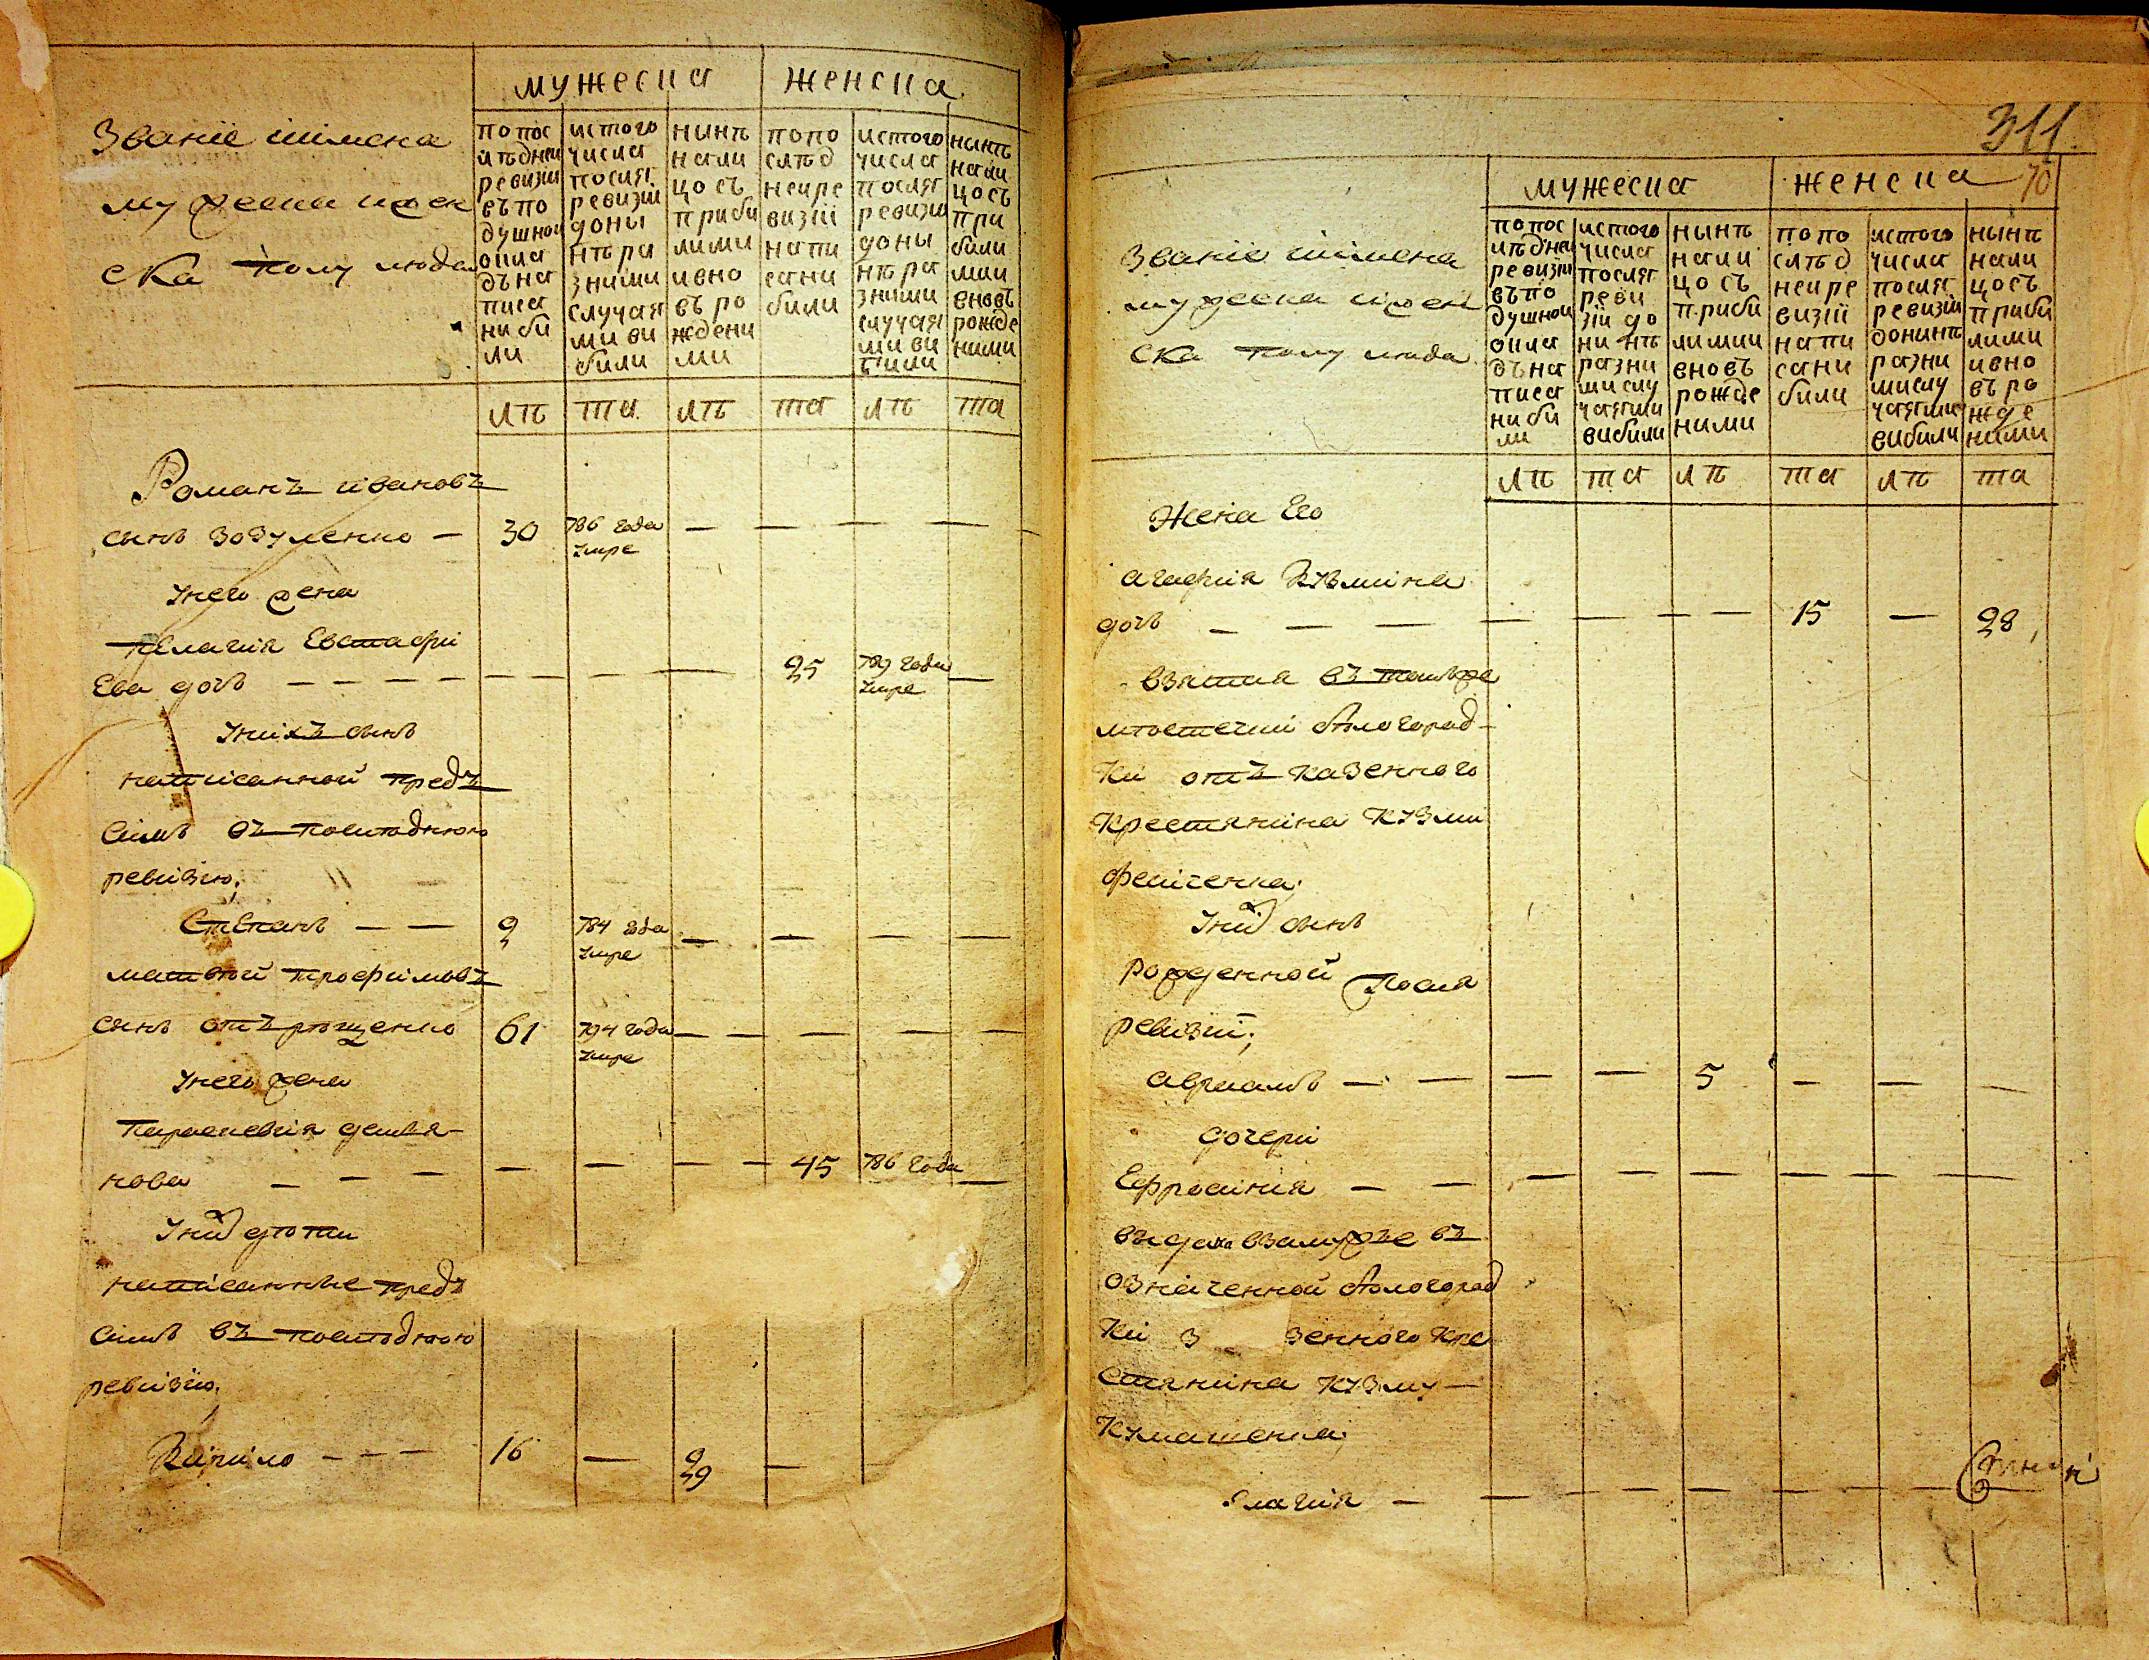 мужеска женска
Званіе иимена
мужеска ижен
ска полу люда
попос
лѣдней
ревизіи
въпо
душной
окла
дъна
писа
ниби
ли
истого
числа
послѣ
ревизіи
доны
нѣра
зними
случая
ми ви
били
нынѣ
нали
цосъ
приби
лими
ивно
въро
ждени
ми
попо
слѣд
неире
визіи
напи
сани
били
истого
числа
послѣ
ревизіи
доны
нѣра
зними
случая
ми ви
били
нынѣ
нали
цосъ
при
били
мии
вновъ
рожде
ними
лѣ та лѣ та лѣ та
Романъ ивановъ
сынъ Зозуленко — 30 786 года умре — — — —
унего жена
пелагія Евстафі
Ева дочь — — — — — — — — 25 789 года умре —
унихъ сынъ
написанной предъ
симъ въ последнюю
ревизію;
Степанъ — — 9 784 года умре — — — —
матвѣй трофимовъ
сынъ 61 794 года умре — — — — —
унего жена
параскевия демья-
нова — — — — — — — 45 786 года —
уних дѣти
написанные предъ
симъ въ последнюю
ревизію;
Кирило — — — 16 — 29 — —
311
70
мужеска женска
Званіе иимена
мужеска ижен
ска полу люда
попос
лѣдней
ревизіи
въпо
душной
окла
дъна
писа
ниби
ли
истого
числа
послѣ
реви
зіи до
ни нѣ
разни
мислу
чаями
вибили
нынѣ
нали
цосъ
приби
лимии
вновъ
рожде
ними
попо
слѣд
неире
визіи
напи
сани
били
истого
числа
послѣ
ревизіи
донинѣ
разни
мислу
чаями
вибили
нынѣ
нали
цосъ
приби
лими
ивно
въро
жде
ними
лѣ та лѣ та лѣ та
Жена Его
агафия Кузмина
дочь — — — — — — — 15 — 28
взятая въ томъже
мѣстечки
ки отъ казенного
Крестянина Кузми
уних сынъ
рожденной после
ревизіи;
авраамъ — — — — 5 — — —
дочери
Ефросиния — — — — — — — —
выдана взамужъе въ
означенной
ки з зенного Кре
стянина Кузму
лагия — — — — — — —